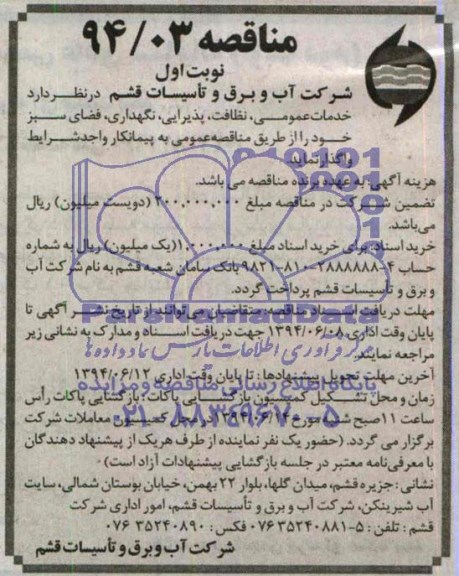 مناقصه ۹۴/۰۳
نوبت اول
شرکت آب و برق و تأسیسات قشم درنظر دارد
خدمات عمومی، نظافت، پذیرایی، نگهداری، فضای سبز
خود را از طریق مناقصه عمومی به پیمانکار واجد شرایط
واگذار نماید
هزینه آگهی، به عهده برنده مناقصه می باشد.
تضمین شرکت در مناقصه مبلغ ۲۰۰,۰۰۰,۰۰۰ (دویست میلیون) ریال
می‌باشد.
خرید اسناد: برای خرید اسناد مبلغ ۱,۰۰۰,۰۰۰ (یک میلیون) ریال به شماره
حساب ۴-۲۸۸۸۸۸۸-۸۱۰-۹۸۲۱ بانک سامان شعبه قشم به نام شرکت آب
و برق و تأسیسات قشم پرداخت گردد.
مهلت دریافت اسناد مناقصه: متقاضیان می توانند از تاریخ نشر آگهی تا
پایان وقت اداری ۱۳۹۴/۰۶/۰۸ جهت دریافت اسناد و مدارک به نشانی زیر
مراجعه نمایند.
آخرین مهلت تحویل پیشنهادها: تا پایان وقت اداری ۱۳۹۴/۰۶/۱۲
زمان و محل تشکیل کمیسیون بازگشایی پاکات: بازگشایی پاکات رأس
ساعت ۱۱ صبح مورخ در محل کمیسیون معاملات شرکت
برگزار می گردد. (حضور یک نفر نماینده از طرف هریک از پیشنهاد دهندگان
با معرفی نامه معتبر در جلسه بازگشایی پیشنهادات آزاد است)
نشانی: جزیره قشم، میدان گلها، بلوار ۲۲ بهمن، خیابان بوستان شمالی، سایت
آب شیرینکن، شرکت آب و برق و تأسیسات قشم، امور اداری شرکت
قشم: تلفن: ۵-۰۷۶۳۵۲۴۰۸۸۱ فکس: ۰۷۶۳۵۲۴۰۸۹۰
شرکت آب و برق و تأسیسات قشم
ParsNamadData
مرکز فرآوری اطلاعات پارس نماد داده ها
پایگاه اطلاع رسانی مناقصه و مزایده
۰۲۱-۸۸۳۴۹۶۷۰-۵